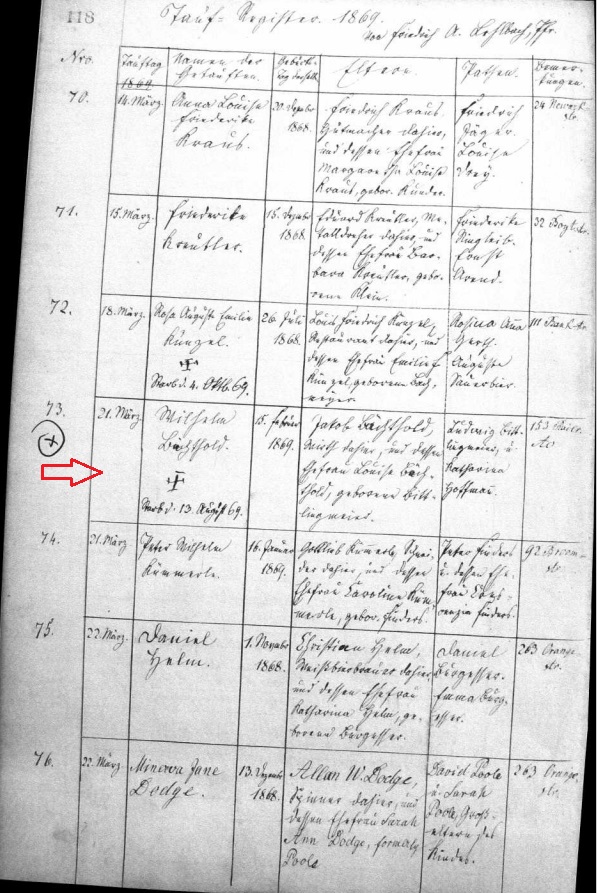 118
Tauf-Register. 1869.
von Friedrich A. Lehlbach, Pfr.
Nro.
Tauftag 1869.
Namen der Getauften.
Eltern.
Pathen.
Bemerkungen.
70.
14. März.
Anna Louise
Friederike
Kraus.
20. Dezember
1868.
Friedrich Kraus,
Hutmacher dahier,
und dessen Ehefrau
Margaretha Louise
Kraus, gebor. Kunder.
Friedrich
Jäger.
Louise
24 Newark
str.
71.
15. März.
Friederike
Kreutler.
15. Dezember
1868
Eduard Kreutler, Me-
talldreher dahier, und
dessen Ehefrau Bar-
bara Kreutler, gebo-
rene Klein.
Friederike
Ringleib.
Ernst
Arend.
32
72.
18. März.
Rosa Auguste Emilie
Künzel.
Starb d. 4. Oktb. 69.
26. Juli
1868.
Louis Friedrich Künzel,
Restaurant dahier, und
dessen Ehefrau Emilie
Künzel, geborene Bach-
meyer.
Rosina Anna
Gerth.
Auguste
Sauerbier.
111 Bank str.
73.
21. März
Wilhelm
Bächthold.
Starb d. 13. August 69.
15. Februar
1869.
Jakob Bächthold,
Wirth dahier, und dessen
Ehefrau Louise Bäch-
thold, geborene Bitt-
lingmeier.
Ludwig Bitt-
lingmeier, u.
Katharina
Hoffman.
153
Av
74.
21. März
Peter Wilhelm
Kümmerle.
16. Januar
1869.
Gottlieb Kümmerle, Schnei-
der dahier, und dessen
Ehefrau Karoline Küm-
merle, gebor. Finders.
Peter Finders
u. dessen Ehe-
frau Cres-
cenzia Finders.
92 Broom-
str.
75.
22. März.
Daniel
Helm.
1. November
1868.
Christian Helm,
Weißbierbrauer dahier
und dessen Ehefrau
Katharina Helm, ge-
borene Burgesser.
Daniel
Burgesser.
Emma Burg-
esser.
263 Orange
str.
76.
22. März
Minerva Jane
Dodge.
13. Dezember
1868.
Allan W. Dodge,
Spinner dahier, und
dessen Ehefrau Sarah
Ann Dodge, formerly
Poole
David Poole
u. Sarah
Poole, Groß-
eltern des
Kindes.
263 Orange
str.